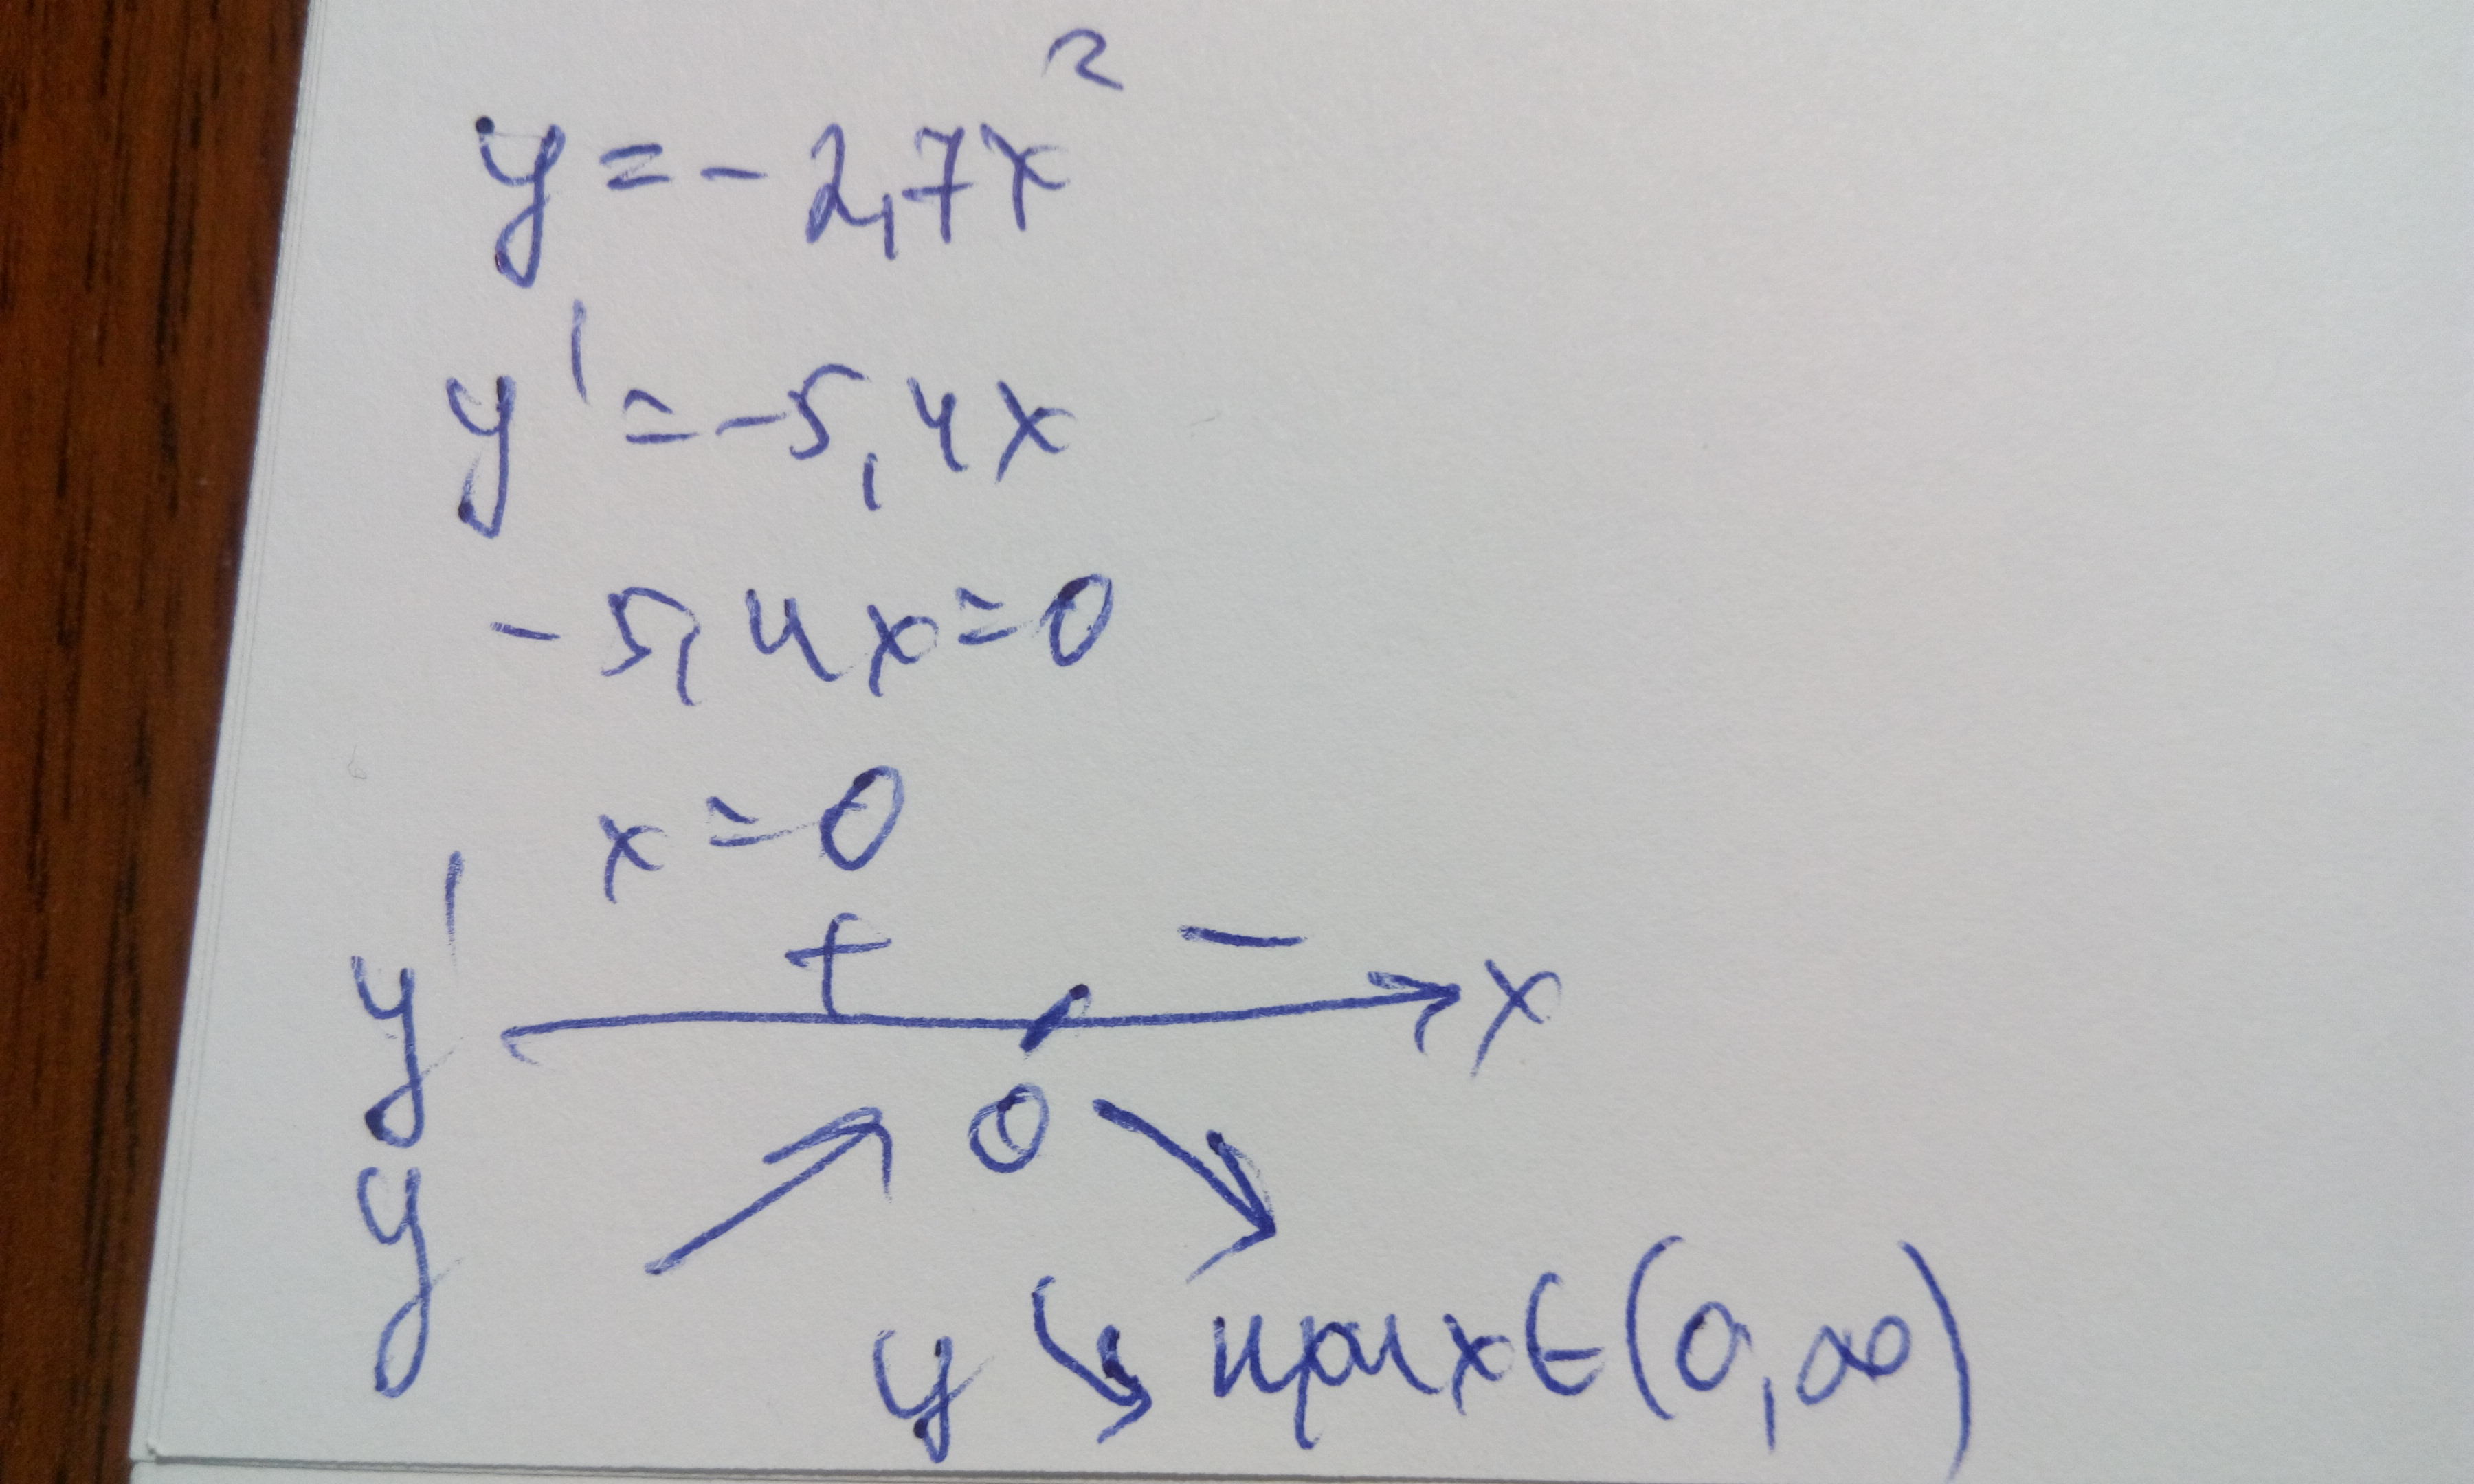 y = - 2,7x²
y' = -5,4x
- 5,4x = 0
x = 0
y' + - x
0
y
y ↘ при x ∈ (0, ∞)